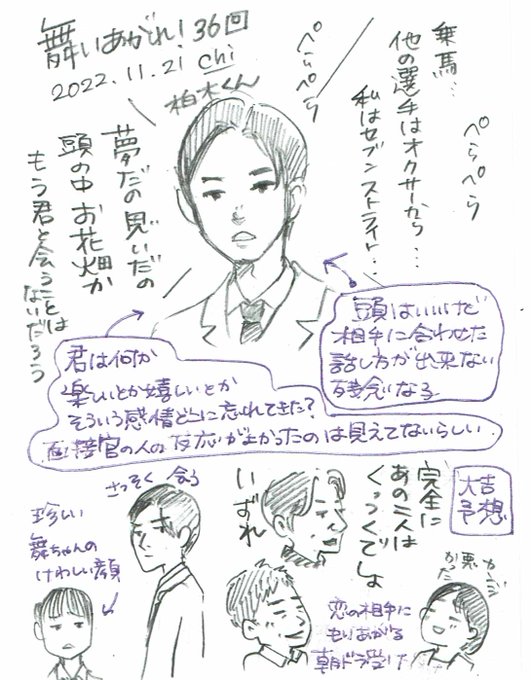 舞いあがれ！36回
2022.11.21 chi
柏木くん
ぺらぺら
乗馬…
他の選手はオクサーから…
私はセブンストライド…
ぺらぺら
夢だの見いだの
頭の中お花畑か
もう君と会うことは
ないだろう
頭はいいけど
相手に合わせた
話し方が出来ない
残念なる
君は何か
楽しいとか嬉しいとか
そういう感情どこに忘れてきた？
面接官の人の反応が上かったのは見えてないらしい
さっそく会う
珍しい
舞ちゃんの
けわしい顔
いずれ
完全に
あの二人は
くっつくでしょ
大吉
予想
かった
恋の相手に
もりあがる
朝ドラ受け